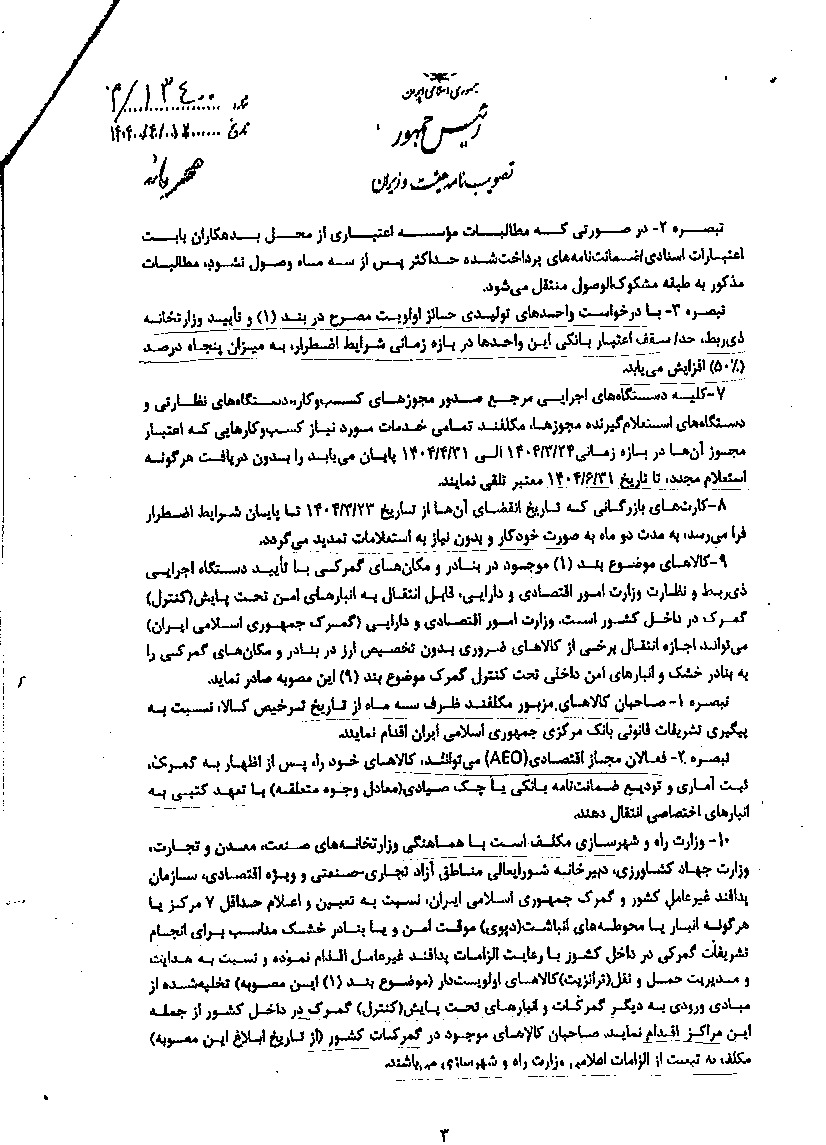 جمهوری اسلامی ایران
رئیس جمهور
تصویب نامه هیئت وزیران
شماره
تاریخ
محرمانه
تبصره ۲- در صورتی که مطالبات مؤسسه اعتباری از محل بدهکاران بابت
اعتبارات اسنادی/ضمانت‌نامه‌های پرداخت‌شده حداکثر پس از سه ماه وصول نشود، مطالبات
مذکور به طبقه مشکوک‌الوصول منتقل می‌شود.
تبصره ۳- با درخواست واحدهای تولیدی حائز اولویت مصرح در بند (۱) و تأیید وزارتخانه
ذی‌ربط، حد/ سقف اعتبار بانکی این واحدها در بازه زمانی شرایط اضطرار، به میزان پنجاه درصد
(۵۰٪) افزایش می‌یابد.
۷- کلیه دستگاه‌های اجرایی مرجع صدور مجوزهای کسب‌وکار، دستگاه‌های نظارتی و
دستگاه‌های استعلام‌گیرنده مجوزها، مکلفند تمامی خدمات مورد نیاز کسب‌وکارهایی که اعتبار
مجوز آن‌ها در بازه زمانی ۱۴۰۴/۳/۲۴ الی ۱۴۰۴/۴/۳۱ پایان می‌یابد را بدون دریافت هرگونه
استعلام مجدد، تا تاریخ ۱۴۰۴/۶/۳۱ معتبر تلقی نمایند.
۸- کارت‌های بازرگانی که تاریخ انقضای آن‌ها از تاریخ ۱۴۰۴/۳/۲۳ تا پایان شرایط اضطرار
فرا می‌رسد، به مدت دو ماه به صورت خودکار و بدون نیاز به استعلامات تمدید می‌گردد.
۹- کالاهای موضوع بند (۱) موجود در بنادر و مکان‌های گمرکی با تأیید دستگاه اجرایی
ذی‌ربط و نظارت وزارت امور اقتصادی و دارایی، قابل انتقال به انبارهای امن تحت پایش(کنترل)
گمرک در داخل کشور است. وزارت امور اقتصادی و دارایی (گمرک جمهوری اسلامی ایران)
می‌تواند اجازه انتقال برخی از کالاهای ضروری بدون تخصیص ارز در بنادر و مکان‌های گمرکی را
به بنادر خشک و انبارهای امن داخلی تحت کنترل گمرک موضوع بند (۹) این مصوبه صادر نماید.
تبصره ۱- صاحبان کالاهای مزبور مکلفند ظرف سه ماه از تاریخ ترخیص کالا، نسبت به
پیگیری تشریفات قانونی بانک مرکزی جمهوری اسلامی ایران اقدام نمایند.
تبصره ۲- فعالان مجاز اقتصادی(AEO) می‌توانند، کالاهای خود را، پس از اظهار به گمرک،
ثبت آماری و تودیع ضمانت‌نامه بانکی یا چک صیادی(معادل وجوه متعلقه) یا تعهد کتبی به
انبارهای اختصاصی انتقال دهند.
۱۰- وزارت راه و شهرسازی مکلف است با هماهنگی وزارتخانه‌های صنعت، معدن و تجارت،
وزارت جهاد کشاورزی، دبیرخانه شورایعالی مناطق آزاد تجاری-صنعتی و ویژه اقتصادی، سازمان
پدافند غیرعامل کشور و گمرک جمهوری اسلامی ایران، نسبت به تعیین و اعلام حداقل ۷ مرکز یا
هرگونه انبار یا محوطه‌های انباشت(دپوی) موقت امن و یا بنادر خشک مناسب برای انجام
تشریفات گمرکی در داخل کشور با رعایت الزامات پدافند غیرعامل اقدام نموده و نسبت به هدایت
و مدیریت حمل و نقل(ترانزیت)کالاهای اولویت‌دار (موضوع بند (۱) این مصوبه) تخلیه‌شده از
مبادی ورودی به دیگر گمرکات و انبارهای تحت پایش(کنترل) گمرک در داخل کشور از جمله
این مراکز اقدام نماید. صاحبان کالاهای موجود در گمرکات کشور (از تاریخ ابلاغ این مصوبه)
مکلف به تبعیت از الزامات اعلامی وزارت راه و شهرسازی می‌باشند.
۳